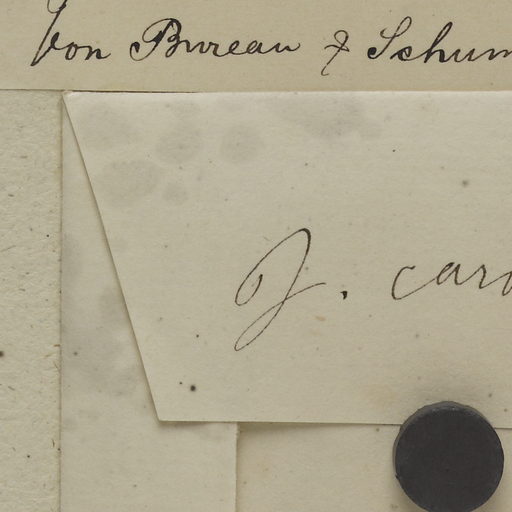 Von Bureau & Schum
J. caro